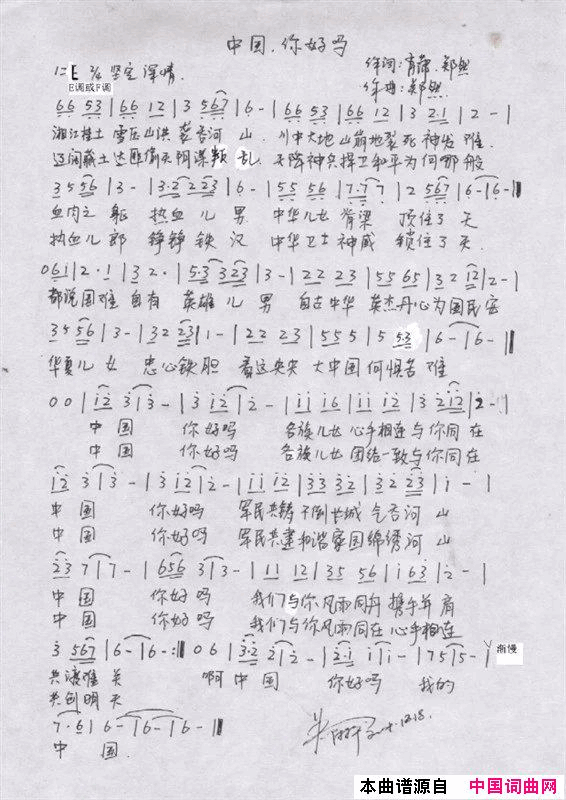 中国,你好吗
1=E 2/4 坚定 深情. 作词:肖肃.郑然
E调或F调 作曲:郑然
66 53 | 66 12 | 3 567 | 6 - | 66 53 | 66 12 | 3 2·1 | 2 - |
湘江桂土 雪压山洪 袭吞河 山. 川中大地 山崩地裂 死神发 难.
辽阔藏土 达匪偷天 阴谋叛 乱. 天降神兵 捍卫和平 为何哪般
35 56 | 3 - | 3·2 2 23 | 6 - | 55 56 | 7·7 7 | 2 567 | 6 - | 6 - ‖
血肉之 躯 热血 儿 男. 中华儿女 脊梁 顶住了 天
热血儿 郎 铮铮 铁 汉 中华卫士 神威 锁住了 关.
0 6 1 | 2 · 1 | 3 2 · | 5·3 323 | 3 - | 22 23 | 55 65 | 32 12 | 2 - |
都说国难 自有 英雄 儿 男 自古中华 英杰丹心 为国民安
35 56 | 3 - | 32 23 | 1 - | 22 23 | 55 5 | 5 53 | 6 - | 6 - ‖
华夏儿 女 忠心铁 胆 看这泱泱 大中国 何惧苦 难
0 0 | 12 3 | 3 - | 3 12 | 2 - | 11 16 | 11 12 | 3 212 | 2 - |
中 国 你好吗 各族儿女 心手相连 与你同 在
中 国 你好吗 各族儿女 团结一致 与你同在
12 3 | 3 - | 3 12 | 2 - | 11 11 | 33 32 | 32 23 | 1 - |
中 国 你好吗 军民共铸 不倒长城 气吞河 山
中 国 你好吗 军民共建 和谐家园 锦绣河 山
23 7 | 7 - | 656 3 | 3 - | 11 12 | 35 56 | 1 63 | 2 - |
中 国 你好吗 我们与你 风雨同舟 携手并 肩
中 国 你好吗 我们与你 风雨同在 心手相连
3 567 | 6 - | 6 - :‖ 0 6 | 3·2 2 | 2 - | 2·1 1 | 1 - | 7 5 | 5 - | 渐慢
共渡难 关 啊 中 国 你好吗 我的
共创明 天
7 · 6 | 6 - | 6 - | 6 - ‖
中 国. 12.18.
本曲谱源自 中国词曲网